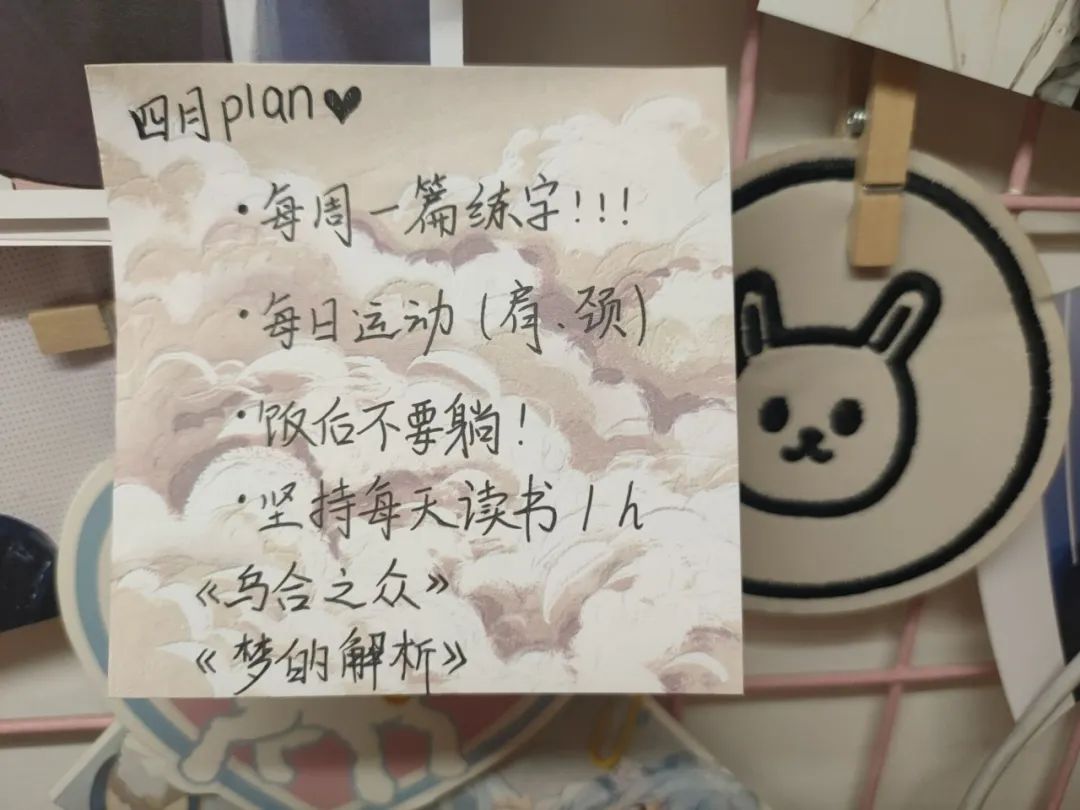 四月plan♥
·每周一篇练字!!!
·每日运动(肩、颈)
·饭后不要躺!
·坚持每天读书1h
《乌合之众》
《梦的解析》